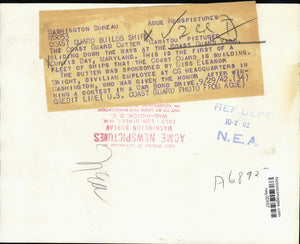 WASHINGTON BUREAU ACME NEWSPICTURES
COAST GUARD BUILDS SHIPS
THE COAST GUARD CUTTER "MANITOU" PICTURED
SLIDING DOWN THE WAYS AT THE COAST GUARD YARD,
BAY, MARYLAND. THIS IS THE FIRST OF A
FLEET OF SHIPS THAT THE COAST GUARD IS BUILDING.
THE CUTTER WAS SPONSORED BY MISS ELEANOR
CIVILIAN EMPLOYEE AT CG HEADQUARTERS IN
WASHINGTON, WHO WAS GIVEN THE HONOR AFTER WIN-
NING A CONTEST IN A WAR BOND DRIVE. 9/29/42
CREDIT LINE (U.S. COAST GUARD PHOTO FROM ACME)
REF. DEPT.
10-2-42
N.E.A.
ACME NEWSPICTURES
WASHINGTON BUREAU
1013 - 13th STREET, N.W.
WASHINGTON, D.C.
Nea
A6892